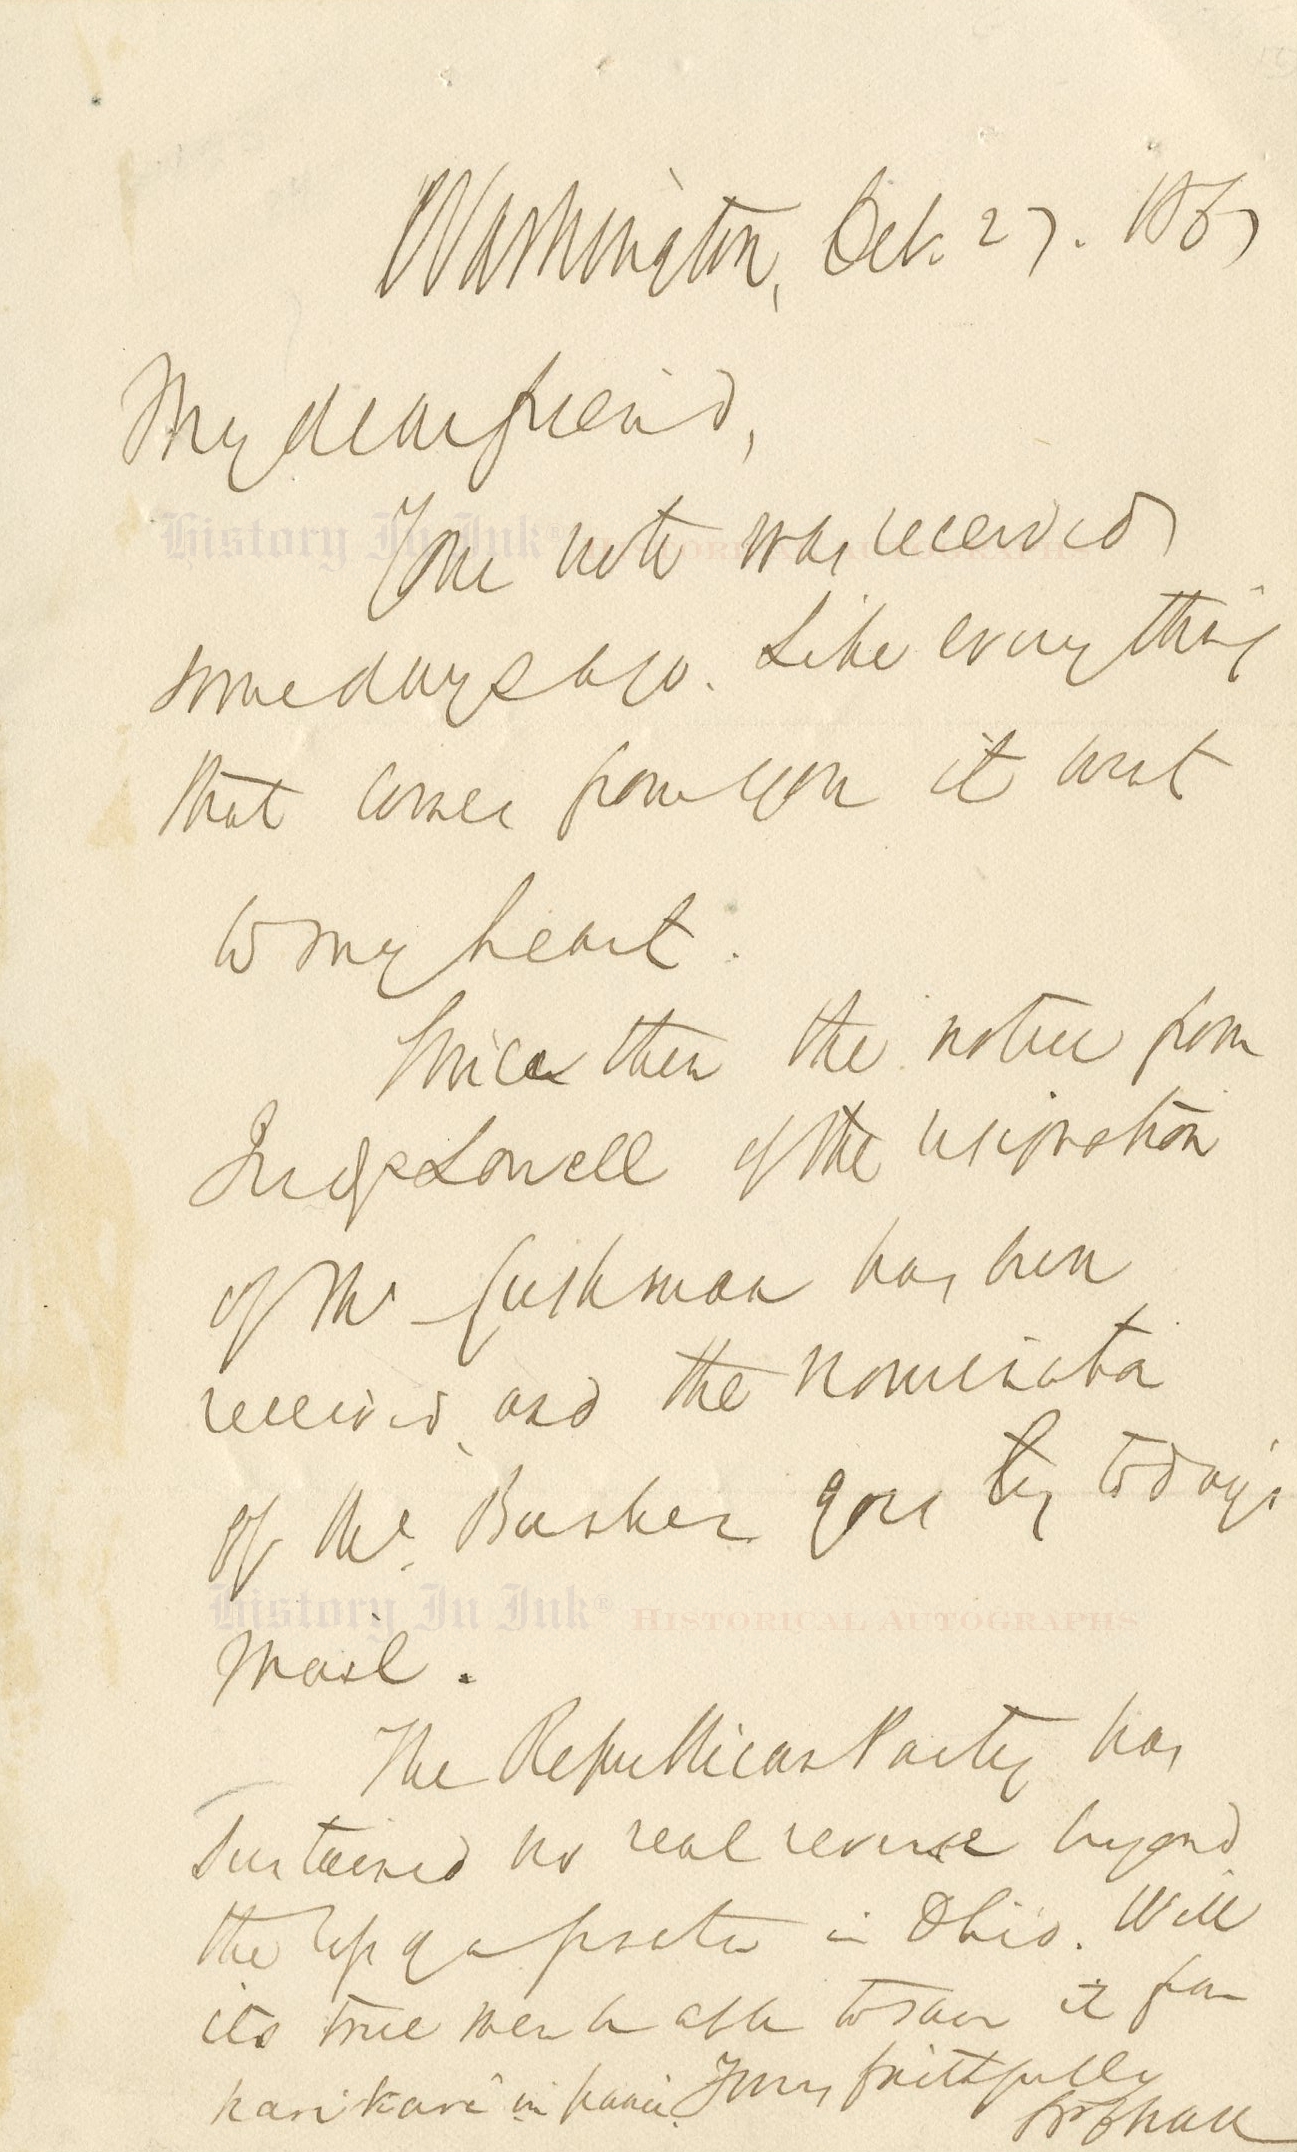 Washington, Oct. 27. 1867
My dear friend,
Your note was received
some days ago. Like every thing
that comes from you it went
to my heart.
Since then the notice from
Judge Lowell of the resignation
of Mr Cushman has been
received, and the nomination
of Mr. Bassher goes by today's
mail.
The Republican Party has
sustained no real reverse beyond
the loss of a senator in Ohio. Will
its true men be able to save it from
hari kari in panic. Yours faithfully
SPChase
History In Ink® HISTORICAL AUTOGRAPHS
History In Ink® HISTORICAL AUTOGRAPHS